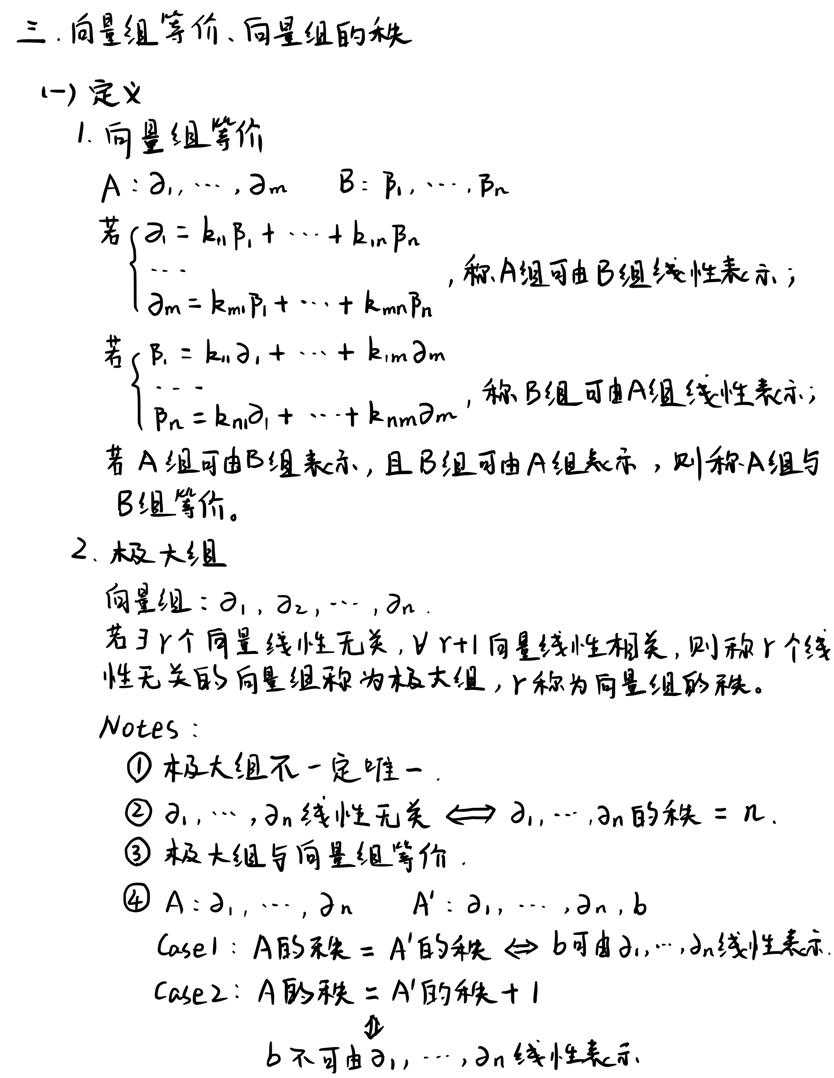 三.向量组等价、向量组的秩
(一) 定义
1. 向量组等价
A:∂₁, ⋯, ∂ₘ B: β₁, ⋯, βₙ
若 { ∂₁ = k₁₁β₁ + ⋯ + k₁ₙβₙ
⋯ ,称A组可由B组线性表示;
∂ₘ = kₘ₁β₁ + ⋯ + kₘₙβₙ
若 { β₁ = k₁₁∂₁ + ⋯ + k₁ₘ∂ₘ
⋯ ,称B组可由A组线性表示;
βₙ = kₙ₁∂₁ + ⋯ + kₙₘ∂ₘ
若A组可由B组表示,且B组可由A组表示,则称A组与
B组等价。
2. 极大组
向量组:∂₁, ∂₂, ⋯, ∂ₙ.
若∃r个向量线性无关,∀r+1向量线性相关,则称r个线
性无关的向量组称为极大组,r称为向量组的秩。
Notes:
① 极大组不一定唯一.
② ∂₁, ⋯, ∂ₙ线性无关 ⟺ ∂₁, ⋯, ∂ₙ的秩 = n.
③ 极大组与向量组等价.
④ A:∂₁, ⋯, ∂ₙ A':∂₁, ⋯, ∂ₙ, b
Case1: A的秩 = A'的秩 ⇔ b可由∂₁, ⋯, ∂ₙ线性表示.
Case2: A的秩 = A'的秩 + 1
⇕
b不可由∂₁, ⋯, ∂ₙ线性表示.